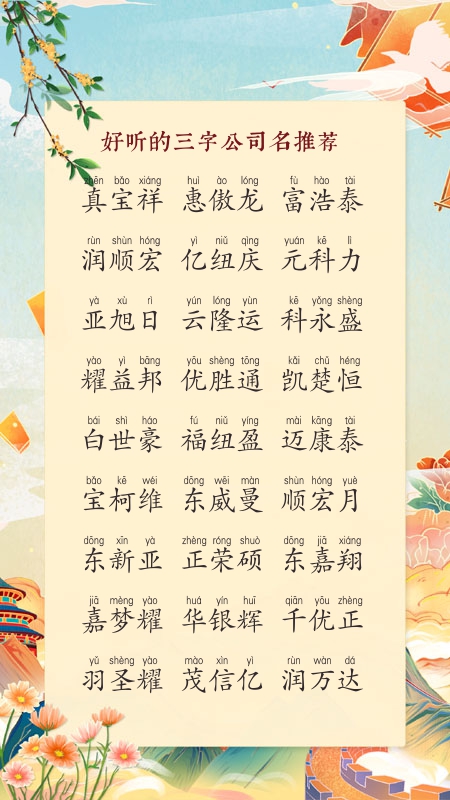 好听的三字公司名推荐
zhēn bǎo xiáng huì ào lóng fù hào tài
真宝祥 惠傲龙 富浩泰
rùn shùn hóng yì niǔ qìng yuán kē lì
润顺宏 亿纽庆 元科力
yà xù rì yún lóng yùn kē yǒng shèng
亚旭日 云隆运 科永盛
yào yì bāng yōu shèng tōng kǎi chǔ héng
耀益邦 优胜通 凯楚恒
bái shì háo fú niǔ yíng mài kāng tài
白世豪 福纽盈 迈康泰
bǎo kē wéi dōng wēi màn shùn hóng yuè
宝柯维 东威曼 顺宏月
dōng xīn yà zhèng róng shuò dōng jiā xiáng
东新亚 正荣硕 东嘉翔
jiā mèng yào huá yín huī qiān yōu zhèng
嘉梦耀 华银辉 千优正
yǔ shèng yào mào xìn yì rùn wàn dá
羽圣耀 茂信亿 润万达